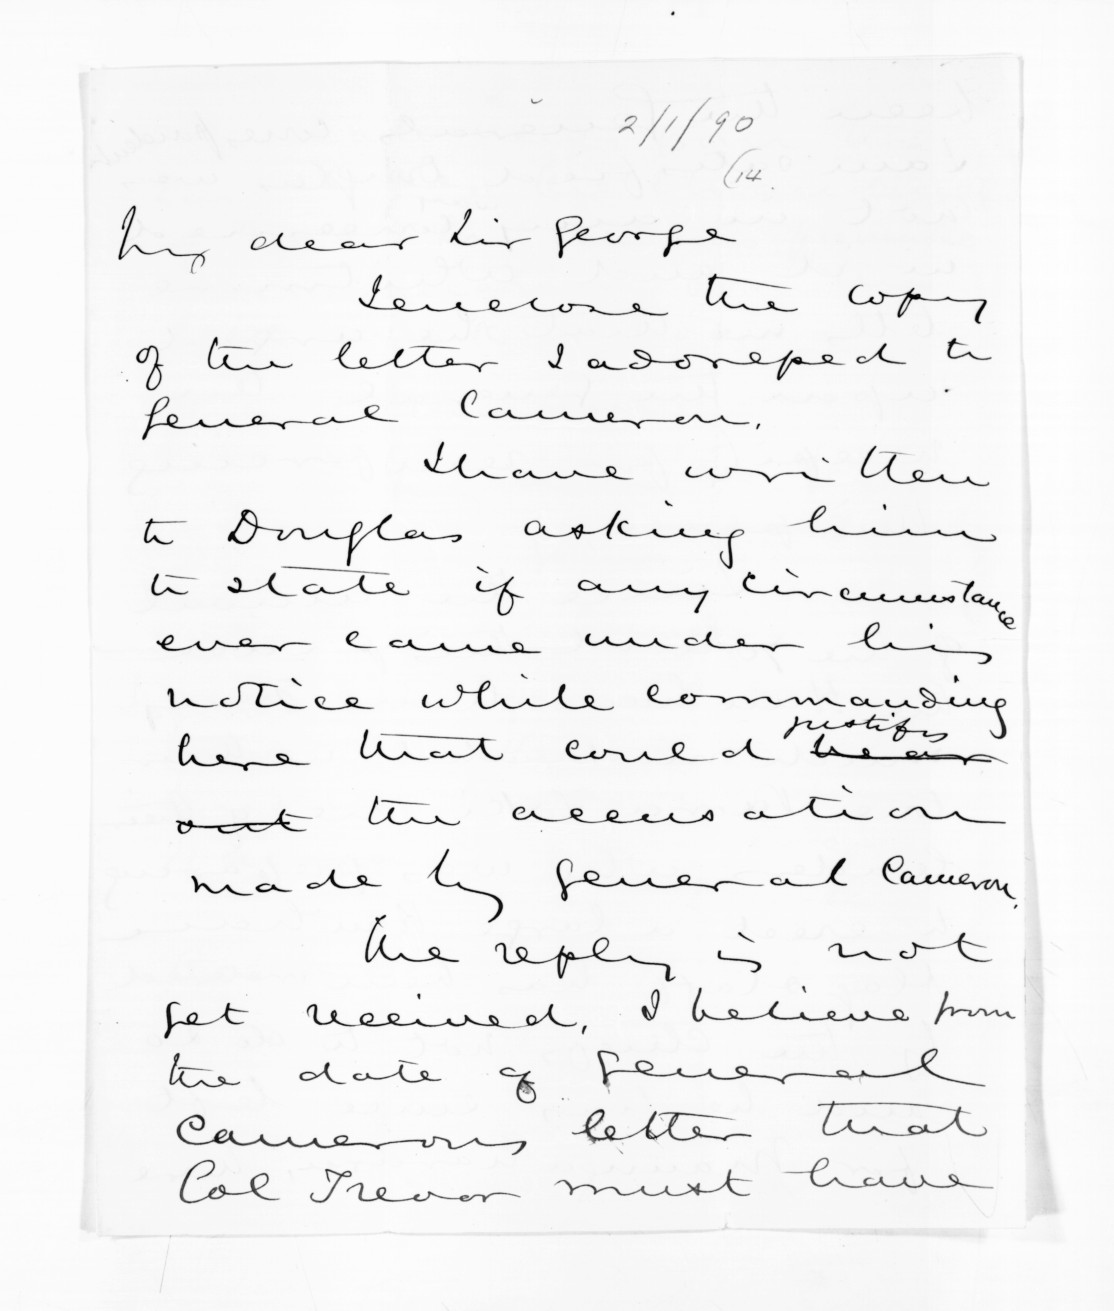 2/1/90
(14.
My dear Sir George
I enclose the copy
of the letter I addressed to
General Cameron.
I have written
to Douglas asking him
to state if any circumstance
ever came under his
notice while commanding
here that could justify bear
out the accusation
made by General Cameron.
The reply is not
yet received, I believe from
the date of General
Camerons letter that
Col Trevor must have